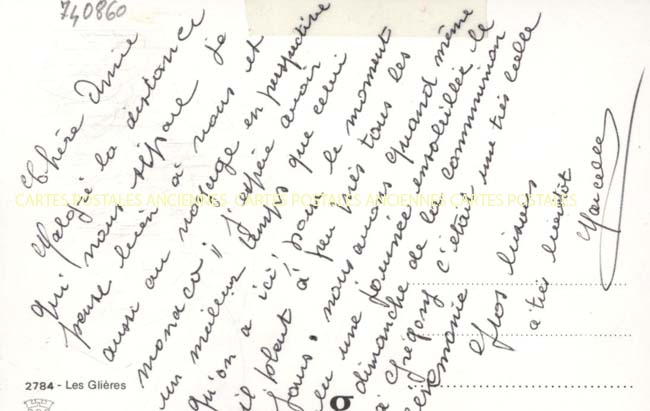 740860
Chère Amie
Malgré la distance
qui nous sépare je
pense bien à vous et
aussi au voyage en perspective
monaco" J'espère avoir
un meilleur temps que celui
qu'on a ici, pour le moment
il pleut à peu près tous les
jours, nous avons quand même
eu une journée ensoleillée le
dimanche de la communion
à Grégory c'était une très belle
cérémonie
Gros bisous
à très bientôt
Marcelle
CARTES POSTALES ANCIENNES CARTES POSTALES ANCIENNES CARTES POSTALES
2784 - Les Glières